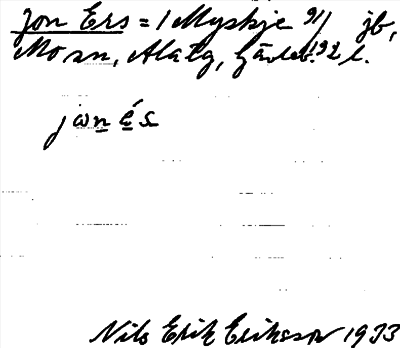 Jon Ers = 1 Myskje 9/1 jb,
Mo sn, Alfta, Gävleb. 192 l.
jωnés
Nils Erik Eriksson 1933